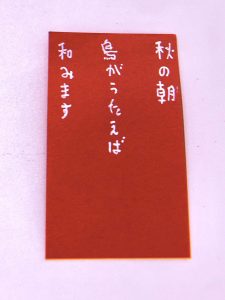 秋の朝
鳥がうたえば
和みます